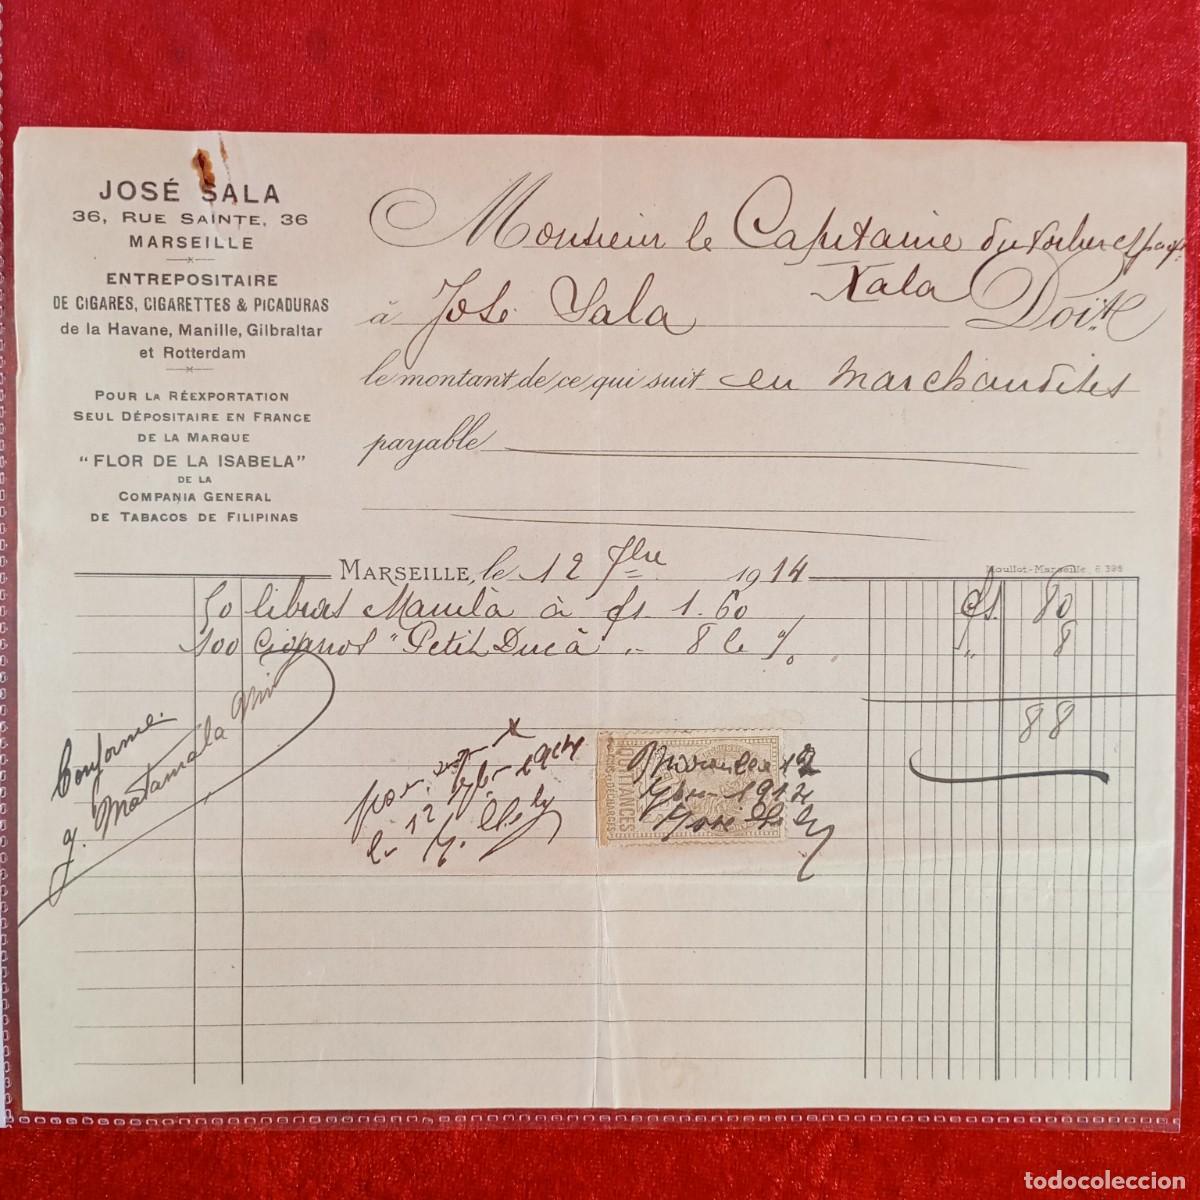 JOSÉ SALA
36, RUE SAINTE, 36
MARSEILLE
ENTREPOSITAIRE
DE CIGARES, CIGARETTES & PICADURAS
de la Havane, Manille, Gilbraltar
et Rotterdam
POUR LA RÉEXPORTATION
SEUL DÉPOSITAIRE EN FRANCE
DE LA MARQUE
"FLOR DE LA ISABELA"
DE LA
COMPAÑIA GENERAL
DE TABACOS DE FILIPINAS
Monsieur le Capitaine du
Xala
à José Sala Doit
le montant de ce qui suit en marchandises
payable
MARSEILLE, le 12 1914
Moullot-Marseille
50 libras Manila à fs. 1.60 fs. 80
100 cigarros "Petit Duc à " 8 le % " 8
88
Conforme
J. Matamala
12 1914
QUITTANCES
REÇUS & DÉCHARGES
Marseille 12